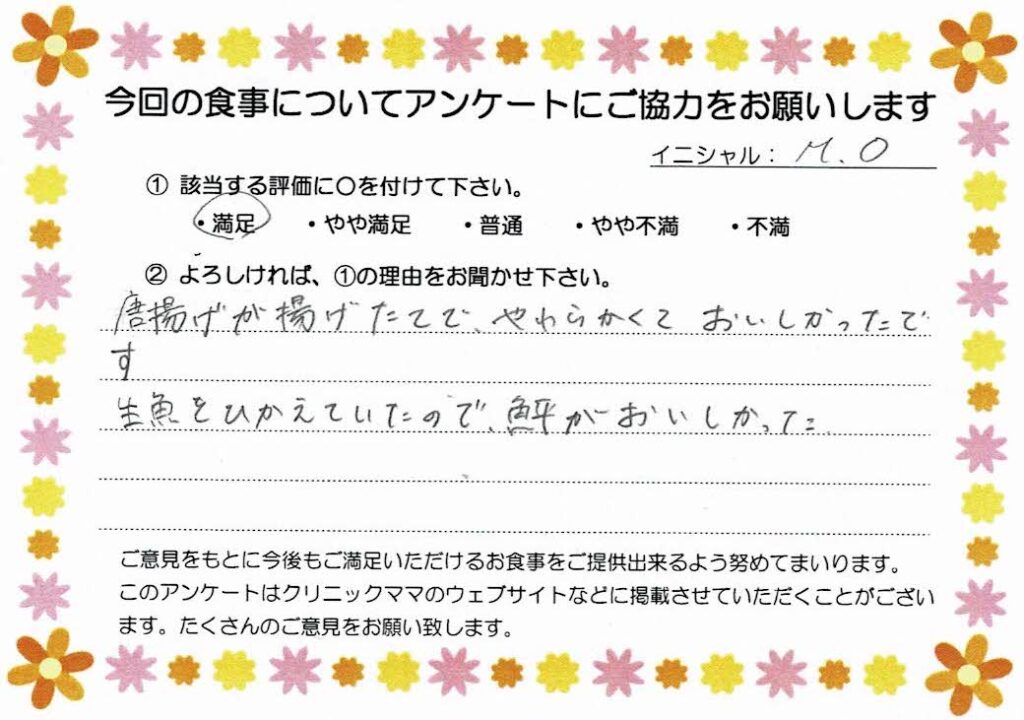 今回の食事についてアンケートにご協力をお願いします
イニシャル： M.O
① 該当する評価に〇を付けて下さい。
・満足 ・やや満足 ・普通 ・やや不満 ・不満
② よろしければ、①の理由をお聞かせ下さい。
唐揚げが揚げたてで、やわらかくて おいしかったで
す
生魚をひかえていたので、鮃がおいしかった
ご意見をもとに今後もご満足いただけるお食事をご提供出来るよう努めてまいります。
このアンケートはクリニックママのウェブサイトなどに掲載させていただくことがござい
ます。たくさんのご意見をお願い致します。